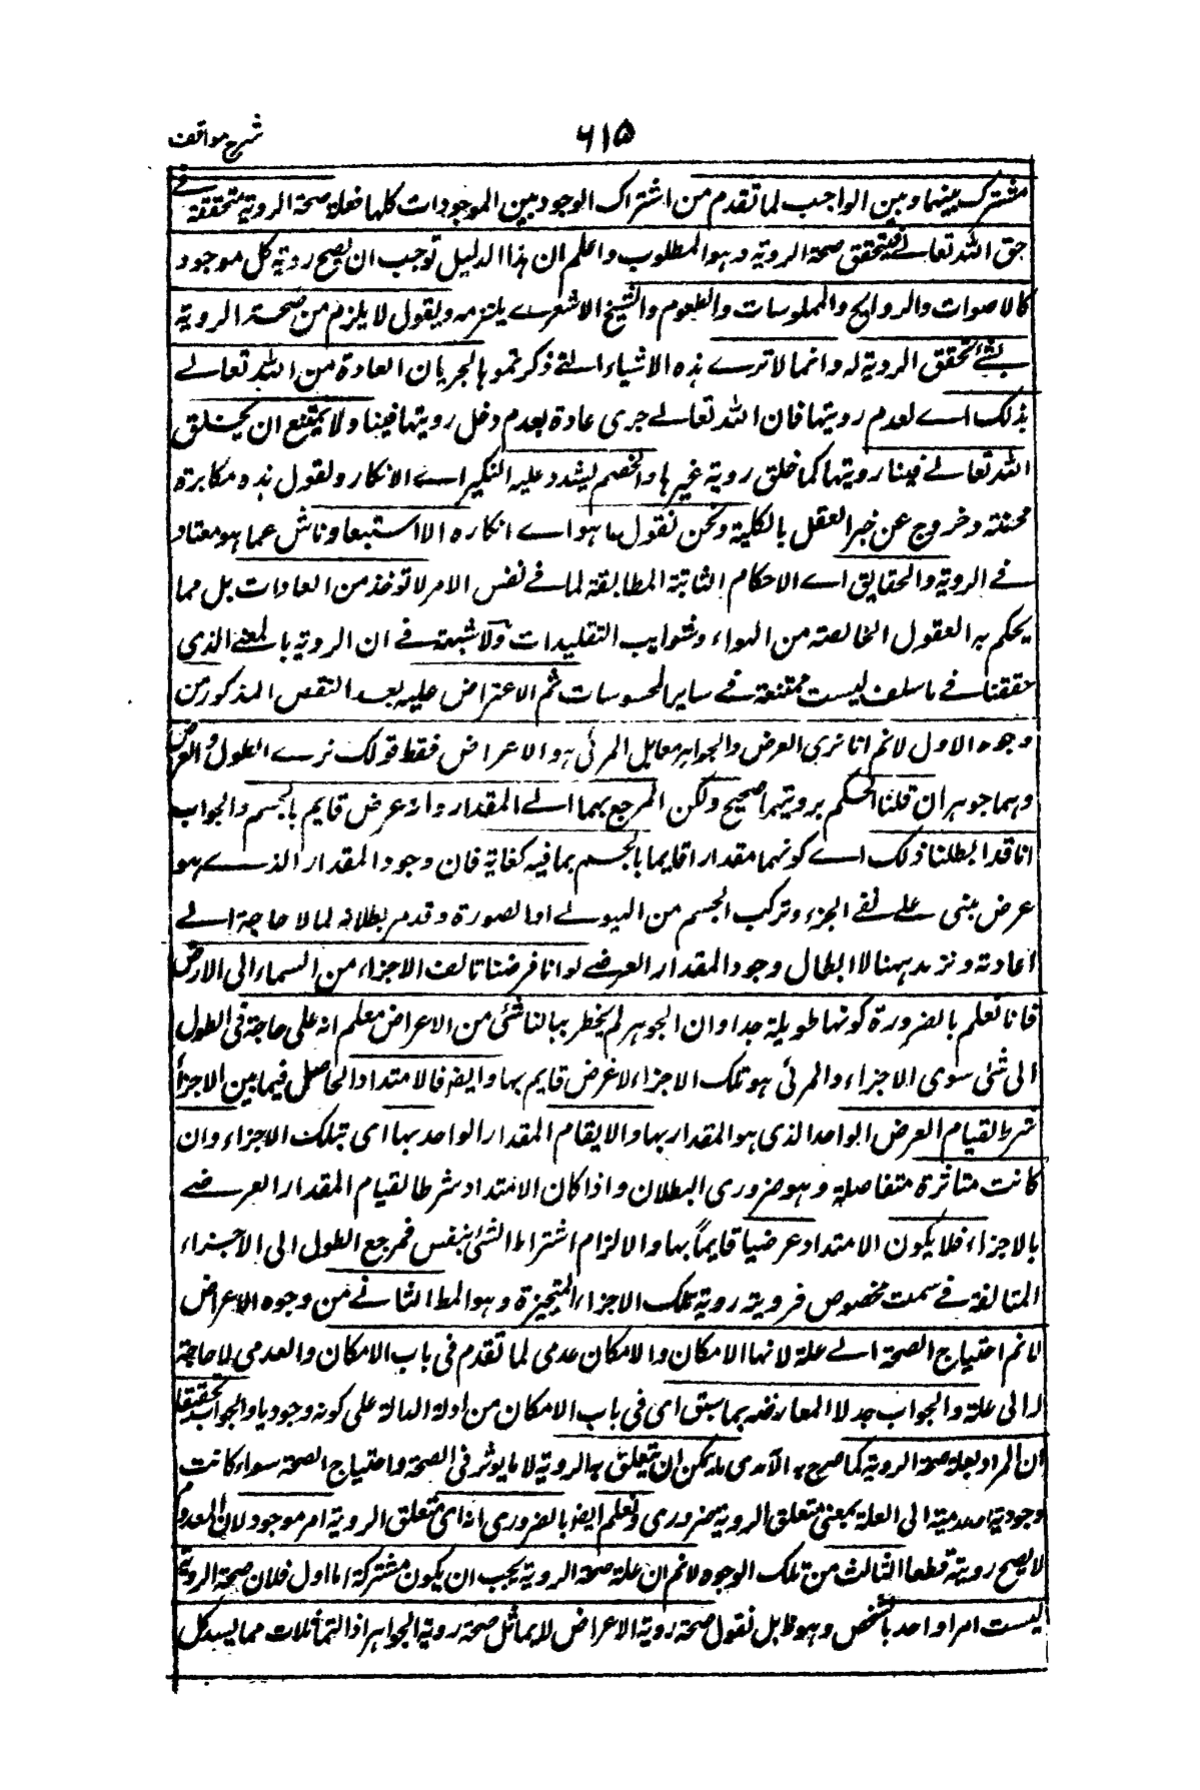 شرح مواقف
۶۱۵
مشترك بينهما وبين الواجب لما تقدم من اشتراك الوجود بين الموجودات كلها فعلة صحة الروية متحققة في
حق الله تعالے فيتحقق صحة الروية وهو المطلوب واعلم ان هذا الدليل توجب ان يصح روية كل موجود
كالاصوات والروايح والملموسات والطعوم والشيخ الاشعرے يلتزمه ويقول لا يلزم من صحة الروية
بشئ تحقق الروية له وانما لا ترے هذه الاشياء التے ذكرتموها لجريان العادة من الله تعالے
بذلك اے لعدم رويتها فان الله تعالے جرى عادة بعدم دخل رويتها فينا ولا يمتنع ان يخلق
الله تعالے فينا رويتها كما خلق روية غيرها والخصم ليشدد عليه النكير اے الانكار ولقول هذه مكابرة
محضة وخروج عن خبر العقل بالكلية ونحن نقول ما هو اے انكاره الا استبعاد ناش عما هو معتاد
فے الروية والحقايق اے الاحكام الثابتة المطابقة لما فے نفس الامر لا توخذ من العادات بل مما
يحكم به العقول الخالصة من الهواء وشوايب التقليدات ولا شبهة فے ان الروية بالمعنے الذى
حققناه فے ما سلف ليست ممتنعة فے ساير المحسوسات ثم الاعتراض عليه بعد النقض المذكور من
وجوه الاول لا نم انا نرى العرض والجواهر معا بل المرئى هو الاعراض فقط قولك نرے الطول والعرض
وهما جوهران قلنا الحكم برويتهما صحيح ولكن المرجع بهما الے المقدار وانه عرض قايم بالجسم والجواب
انا قد ابطلنا ذلك اے كونهما مقدارا قايما بالجسم بما فيه كفاية فان وجود المقدار الذے هو
عرض مبنى علے نفے الجزء وتركب الجسم من الهيولے اوالصورة وقد مر بطلانه لما لا حاجة الے
اعادته ونزيد ههنا لا ابطال وجود المقدار العرضے لو انا فرضنا تالف الاجزاء من السماء الى الارض
فانا نعلم بالضرورة كونها طويلة جدا وان الجوهر لم يخطر ببالنا شئ من الاعراض معلم انه على حاجة فى الطول
الى شئ سوى الاجزاء والمرئى هو تلك الاجزاء لا عرض قايم بها وايضا فالامتداد الحاصل فيما بين الاجزأ
شرط لقيام العرض الواحد الذى هو المقدار بها والا يقام المقدار الواحد بها اى بتلك الاجزاء وان
كانت متناثرة متفاصلة وهو ضرورى البطلان واذا كان الامتداد شرطا لقيام المقدار العرضے
بالاجزاء فلا يكون الامتداد عرضيا قايماً بها والا لزام اشتراط الشئ بنفس فمرجع الطول الى الاجزاء
المتالفة فے سمت مخصوص فرويته روية تلك الاجزاء المتحيزة وهو المط الثانے من وجوه الاعراض
لا نم احتياج الصحة الے علة لانها الامكان والامكان عدمى لما تقدم فى باب الامكان والعدمى لا حاجة
له الى علة والجواب جدلا المعارضه بما سبق اى فى باب الامكان من ادلة الدالة على كونه وجوديا والجواب تحقيقا
ان المراد بعلة صحة الروية كما صرح به الآمدى ما يمكن ان يتعلق به الروية لا ما يوثر فى الصحة واحتياج الصحة سواء كانت
وجودية او عدمية الى العلة بمعنى متعلق الروية ضرورى ونعلم ايضا بالضرورى انه اى متعلق الروية امر موجود لان المعدوم
لا يصح روية قطعا الثالث من تلك الوجوه لا نم ان علة صحة الروية يجب ان يكون مشتركة اما اول فلان صحة الروية
ليست امرا واحد بالشخص وهو ظ بل نقول صحة روية الاعراض لا يماثل صحة روية الجواهر اذ التماثلات مما يسد كل